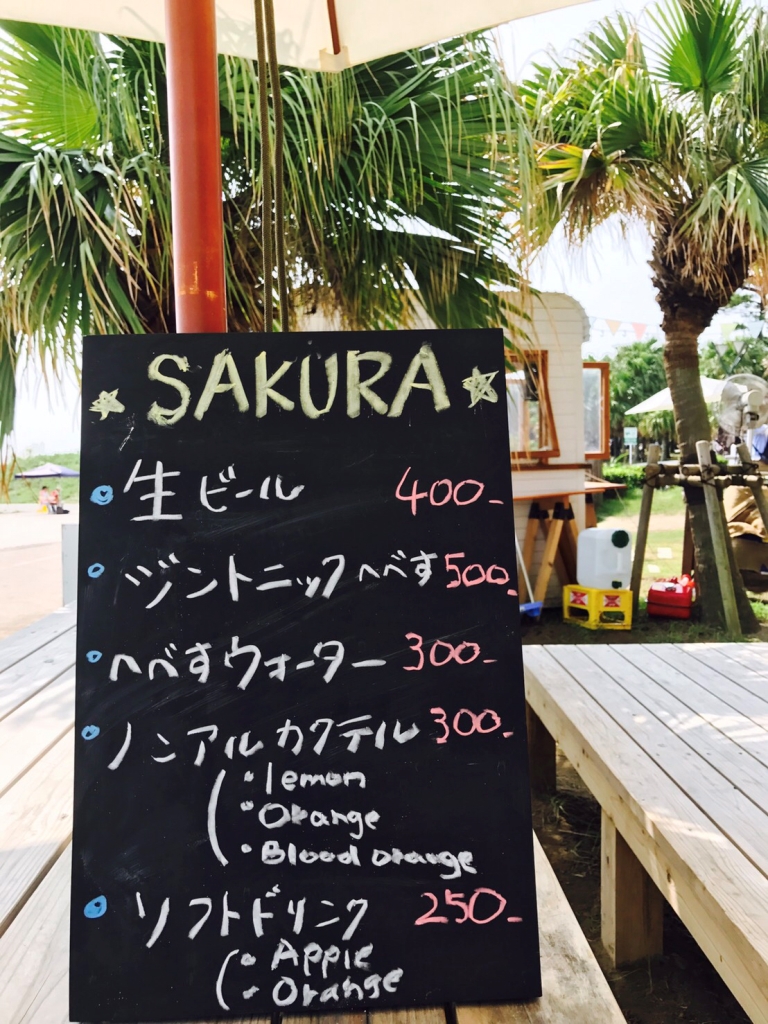 ☆ SAKURA ☆
• 生ビール 400-
• ジントニック へべす 500-
• へべすウォーター 300-
• ノンアルカクテル 300-
(・lemon
・Orange
・Blood orange
• ソフトドリンク 250-
(・Apple
・Orange